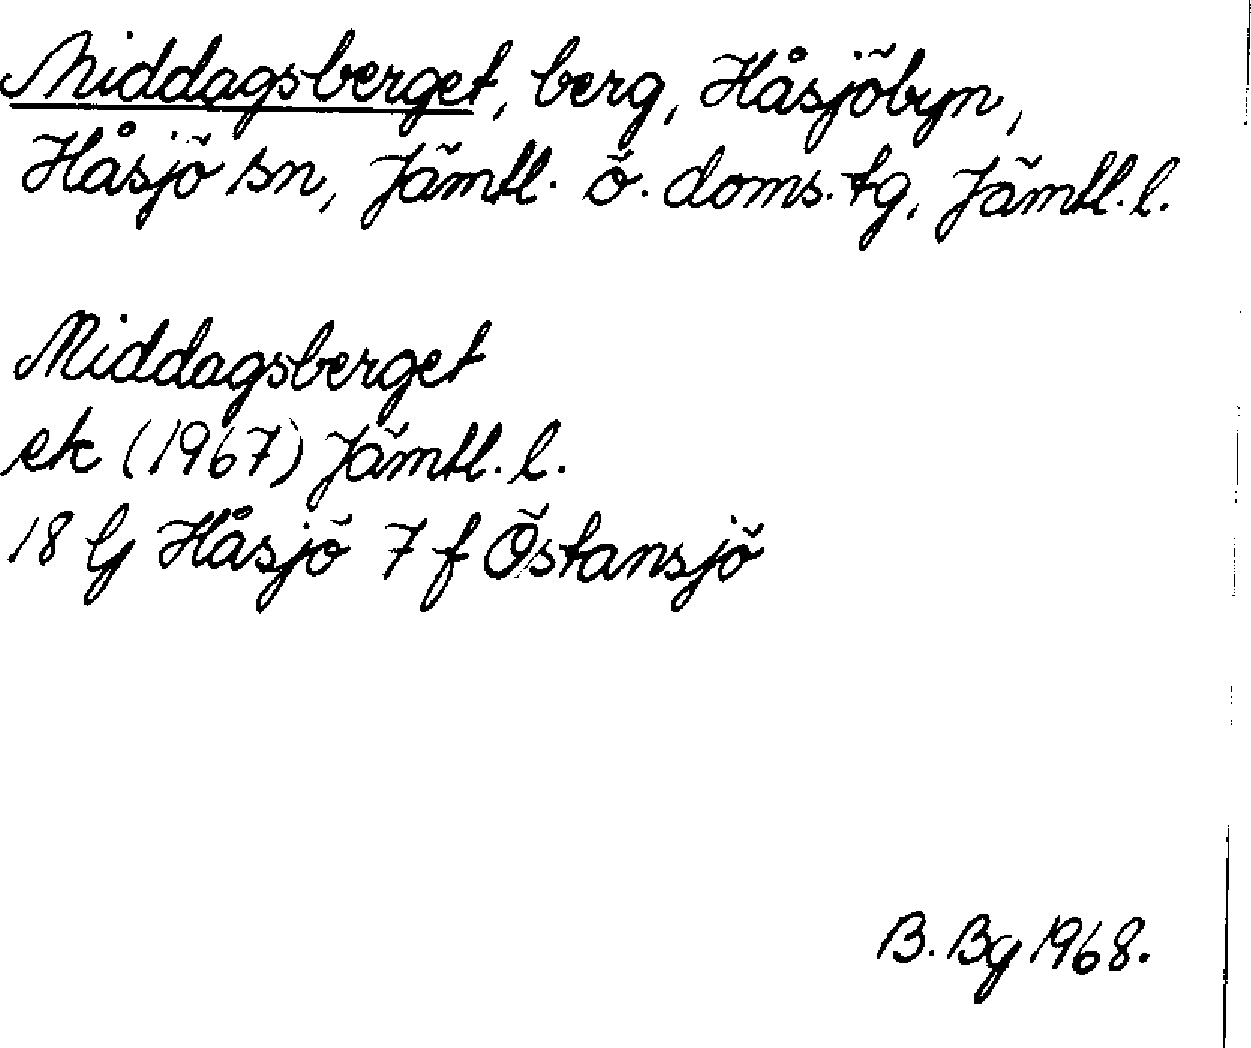 Middagsberget, berg, Håsjöbyn,
Håsjö sn, Jämtl. ö. doms. tg, Jämtl. l.
Middagsberget
ek (1967) Jämtl. l.
18 G Håsjö 7 f Östansjö
B. Bg 1968.